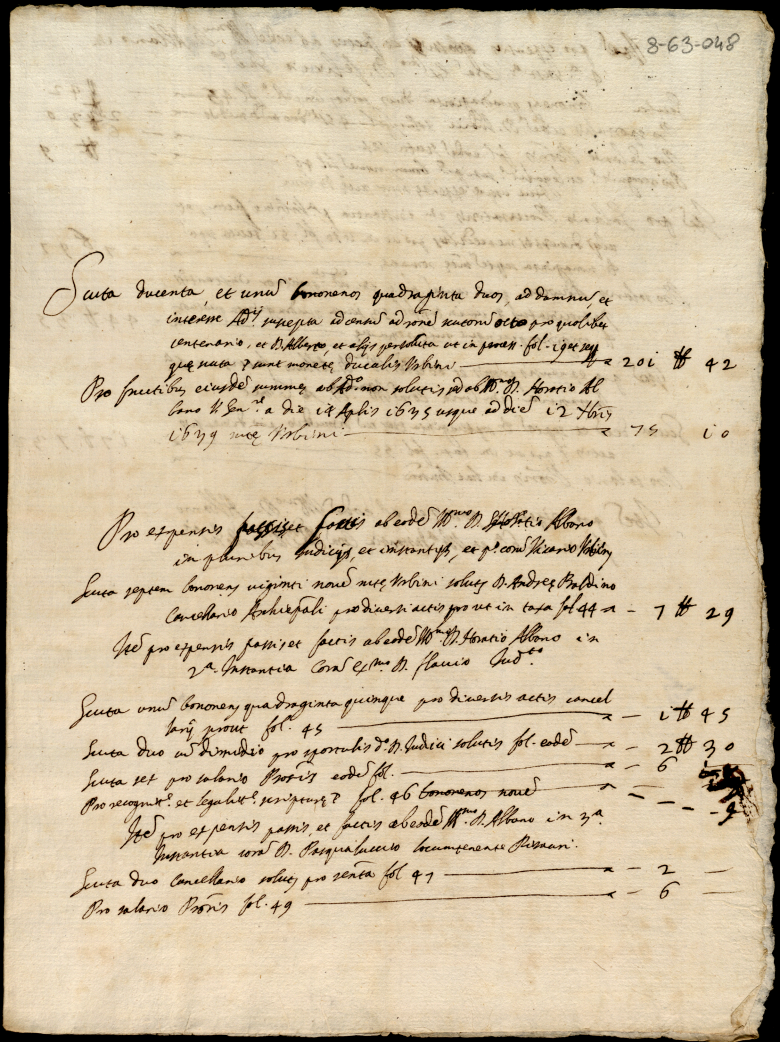 8-63-048
Scuta ducenta, et unũ bononenos quadraginta duos, ad damnũ et
interesse Ad.ʳⁱⁱ suscepta ad censũ ad ronẽ scutorũ octo pro quolibet
centenario, et D. Alberto, et alijs persoluta ut in process. fol. i et seqq
quę scuta sunt monetę ducalis Urbini — 201 # 42
Pro fructibus eiusdẽ summę ab non solutis sed ab Ill.ᵐᵒ D. Horatio Al
bano a die i Aplis i635 usque ad diẽ i2
i639 mtę Urbini — 75 i0
Pro expensis passis et factis ab eodẽ Ill.ᵐᵒ D. Horatio Albano
in pluribus Iudicijs, et instantijs, et p.º corã Vicario Urbini
Scuta septem bononens viginti novẽ mtę Urbini soluts D. Andreę Baldino
Cancellario Archiepãli pro diversis actis prout in taxa fol 44 — 7 # 29
Itẽ pro expensis passis et factis ab eodẽ Ill.ᵐᵒ D. Horatio Albano in
2.ª Instantia corã Ex.ᵐᵒ D. Flavio
Scuta unũ bononens quadraginta quinque pro diversis actis cancel
larij prout fol. 45 — i # 45
Scuta duo cũ dimidio pro sportulis d.º D. Iudici solutis fol. eodẽ — 2 # 30
Scuta sex pro salario Proris eodẽ fol. — 6
Pro recognit.ᵉ et legalit.ᵉ scripturę fol. 46 bononenos novẽ — 9
Itẽ pro expensis passis, et factis ab eodẽ Ill.ᵐᵒ D. Albano in 3.ª
Instantia corã D. Pasqualuccio locumtenente Pisauri.
Scuta duo Cancellario soluts pro sentã fol 47 — 2 —
Pro salario Proris fol. 49 — 6 —